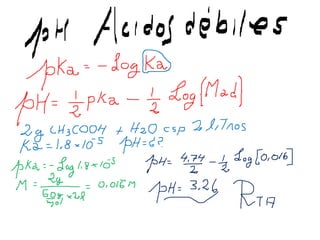 pH Acidos débiles
pKa = - Log Ka
pH = 1/2 pKa - 1/2 Log[Mad]
2g CH3COOH + H2O csp 2L
Ka = 1.8×10⁻⁵ pH=?
pKa = - Log 1.8×10⁻⁵
M = 2g / 60g × 2L = 0,016M
pH = 4.74/2 - 1/2 Log[0,016]
pH = 3.26 RTA